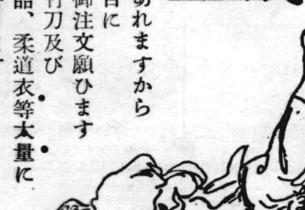 れますから
に
御注文願ひます
刀及び
品、柔道衣等大量に